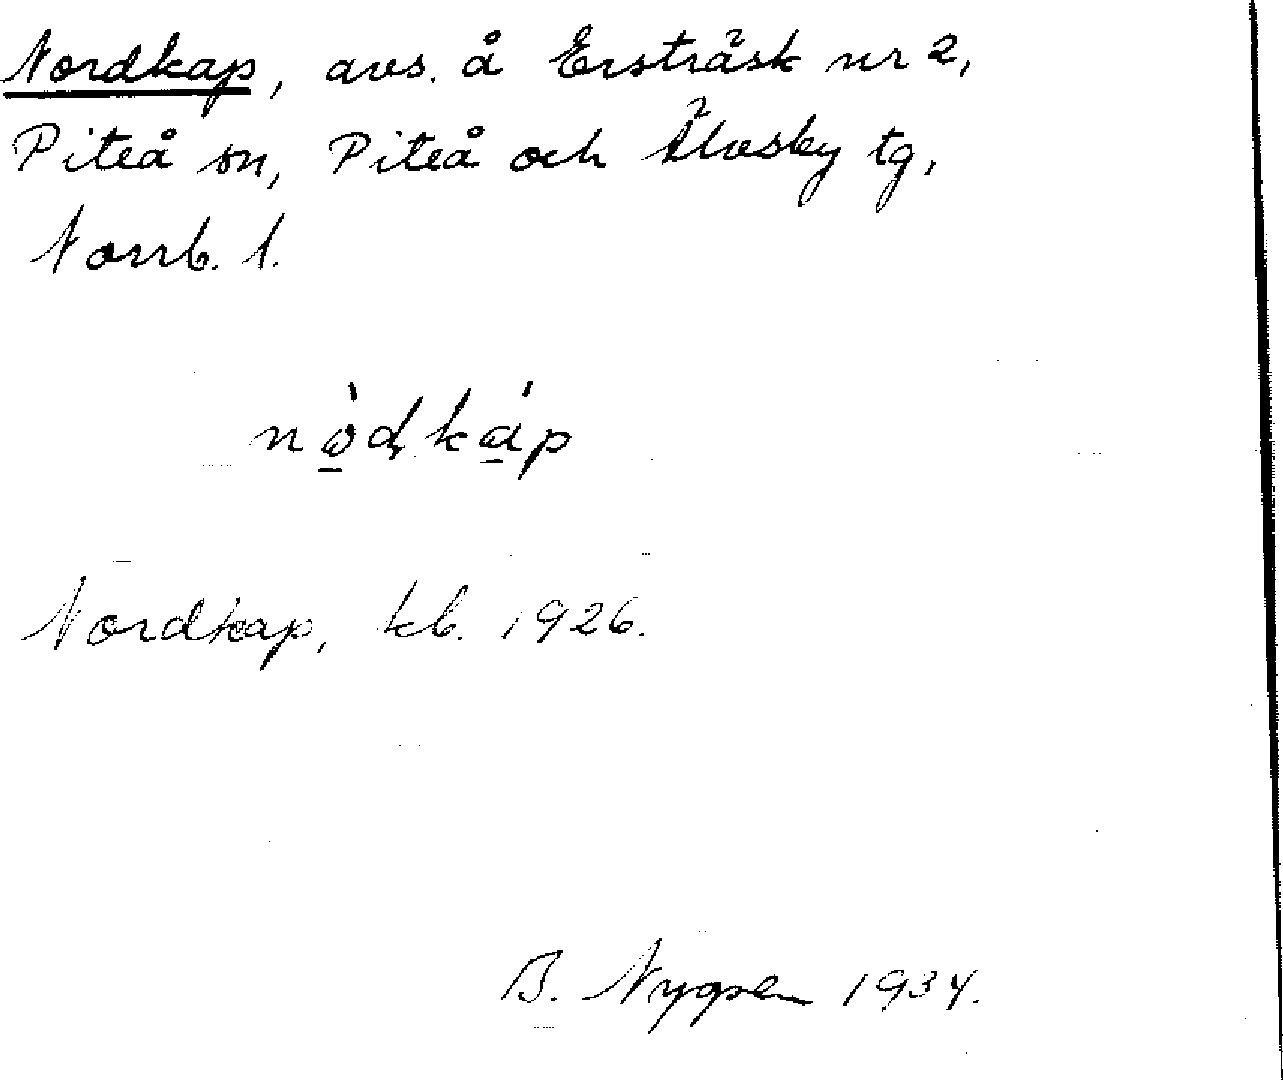 Nordkap, avs. å Ersträsk nr 2,
Piteå sn, Piteå och Älvsby tg,
Norrb. l.
nò̱ḍká̱p
Nordkap, kb. 1926.
B. Nygren 1934.